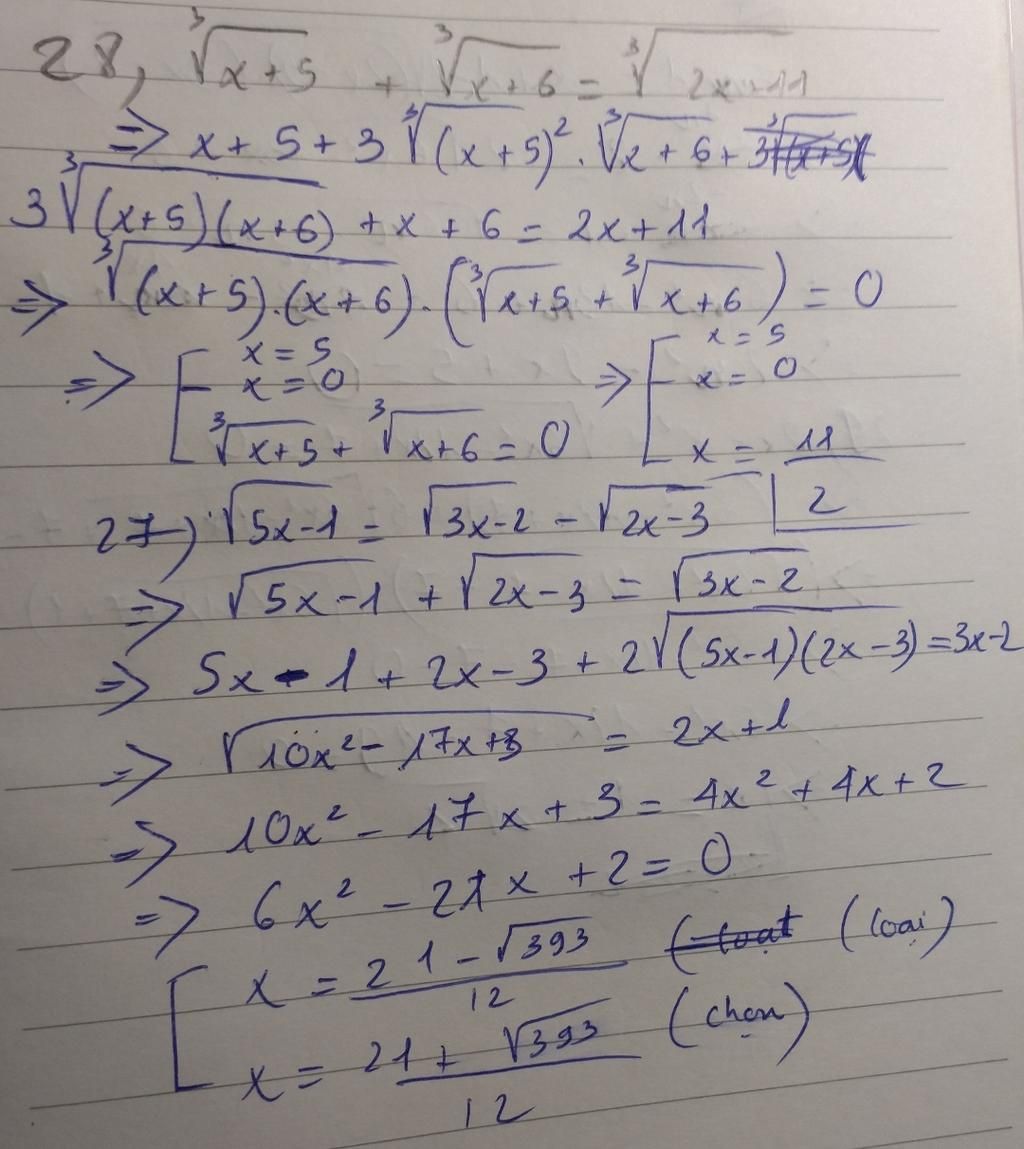 28, ∛(x+5) + ∛(x+6) = ∛(2x+11)
=> x + 5 + 3 ∛(x+5)² . ∛(x+6) +
3 ∛((x+5)(x+6)) + x + 6 = 2x + 11
=> ∛((x+5).(x+6)) . (∛(x+5) + ∛(x+6)) = 0
=> [ x = 5 => [ x = 5
x = 0 x = 0
∛(x+5) + ∛(x+6) = 0 x = 11/2
27) √(5x-1) = √(3x-2) - √(2x-3)
=> √(5x-1) + √(2x-3) = √(3x-2)
=> 5x - 1 + 2x - 3 + 2√((5x-1)(2x-3)) = 3x-2
=> √(10x² - 17x + 3) = 2x + 1
=> 10x² - 17x + 3 = 4x² + 4x + 2
=> 6x² - 21x + 2 = 0
[ x = (21 - √393)/12 (loại)
x = (21 + √393)/12 (chọn)